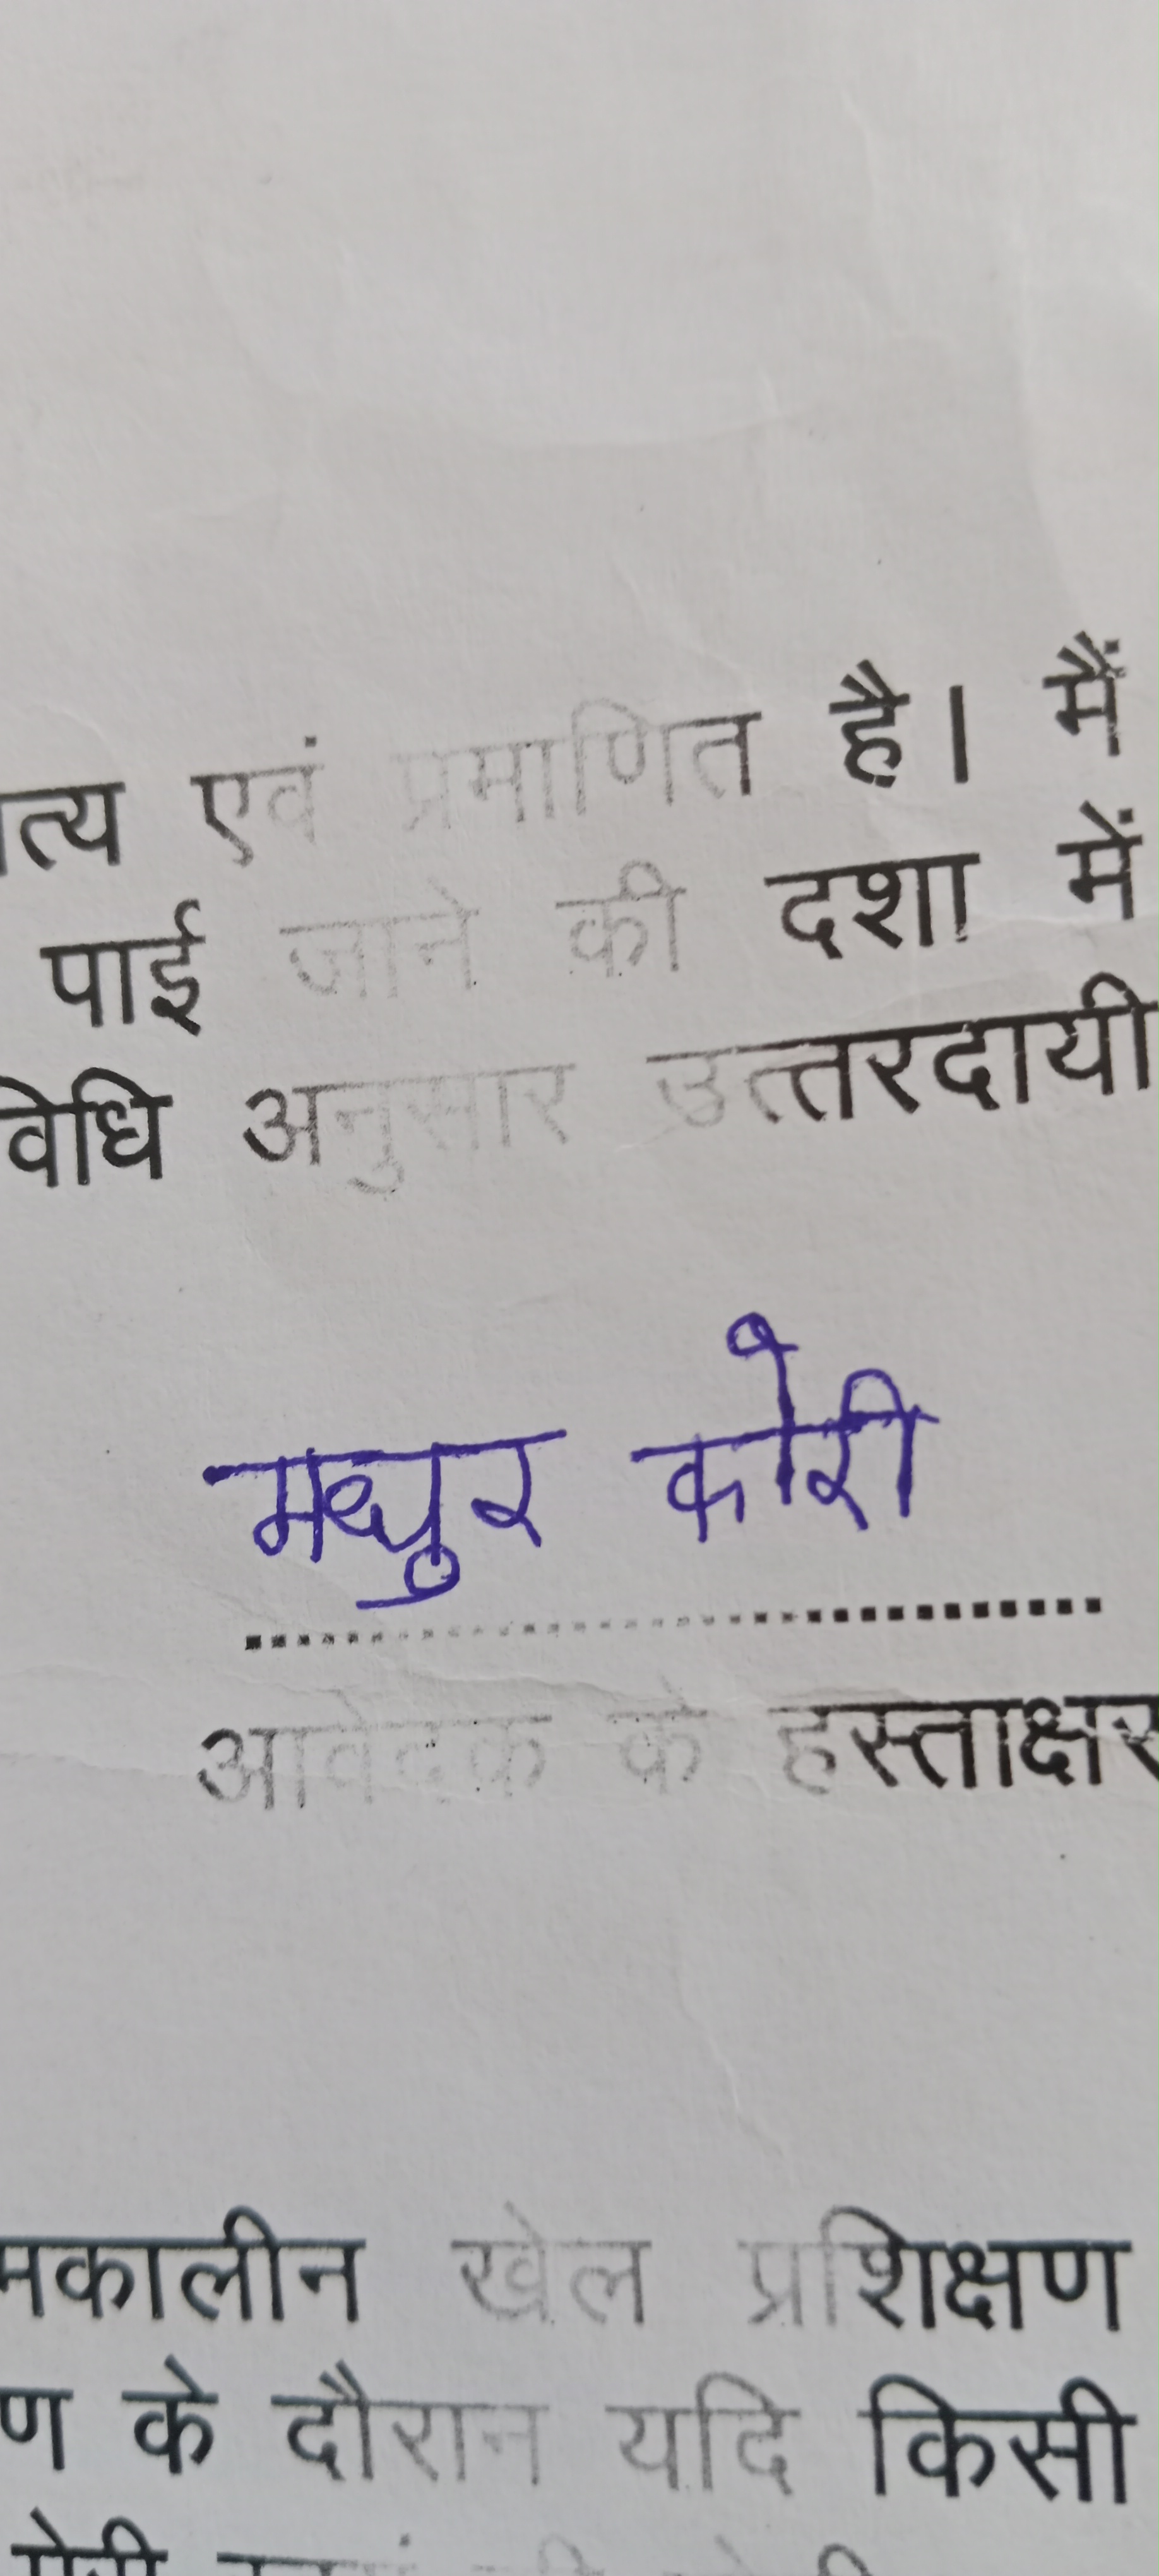 त्य एवं प्रमाणित है। मैं
पाई जाने की दशा में
विधि अनुसार उत्तरदायी
मधुर कोरी
आवेदक के हस्ताक्षर
मकालीन खेल प्रशिक्षण
ण के दौरान यदि किसी